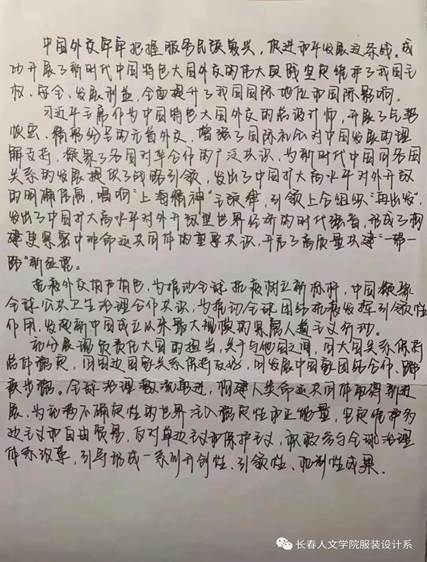 中国外交牢牢把握服务民族复兴、促进
开展了新时代中国特色大国外交的伟大实践坚定维护了我国主
权、安全、发展利益,全面提升了我国国际地位和国际影响。
习近平主席作为中国特色大国外交的总设计师,开展了
精彩纷呈的元首外交,增强了国际社会对中国发展的理
解支持,凝聚了各国对华合作的广泛共识,为新时代中国同各国
关系的发展提供了战略引领,发出了中国扩大高水平对外开放
的明确信号,唱响"上海精神"主旋律,引领上合组织"再出发"
发出了中国扩大高水平对外开放 世界经济的时代强音,形成了构
建更紧密中非命运共同体的重要共识,开启了高质量共建"一带一
路"新征程。
抗疫外交有声有色,为推动全球抗疫树立新标杆,中国凝聚
全球公共卫生治理合作共识,为推动全球团结抗疫发挥引领性
作用,发起新中国成立以来最大规模的 人道主义行动。
充分展现负责任大国的担当,关于与他国之间,同大国关系保持
总体稳定,同周边国家关系保持友好,同发展中国家团结合作
稳步 。全球治理 进,构建人类命运共同体取得新进
展,为动荡不确定性的世界注入稳定性和正能量,坚定维护多
边主义和自由贸易,反对单边主义和保护主义,积极参与全球治理
体系改革,引导形成一系列开创性、引领性、机制性成果.
长春人文学院服装设计系